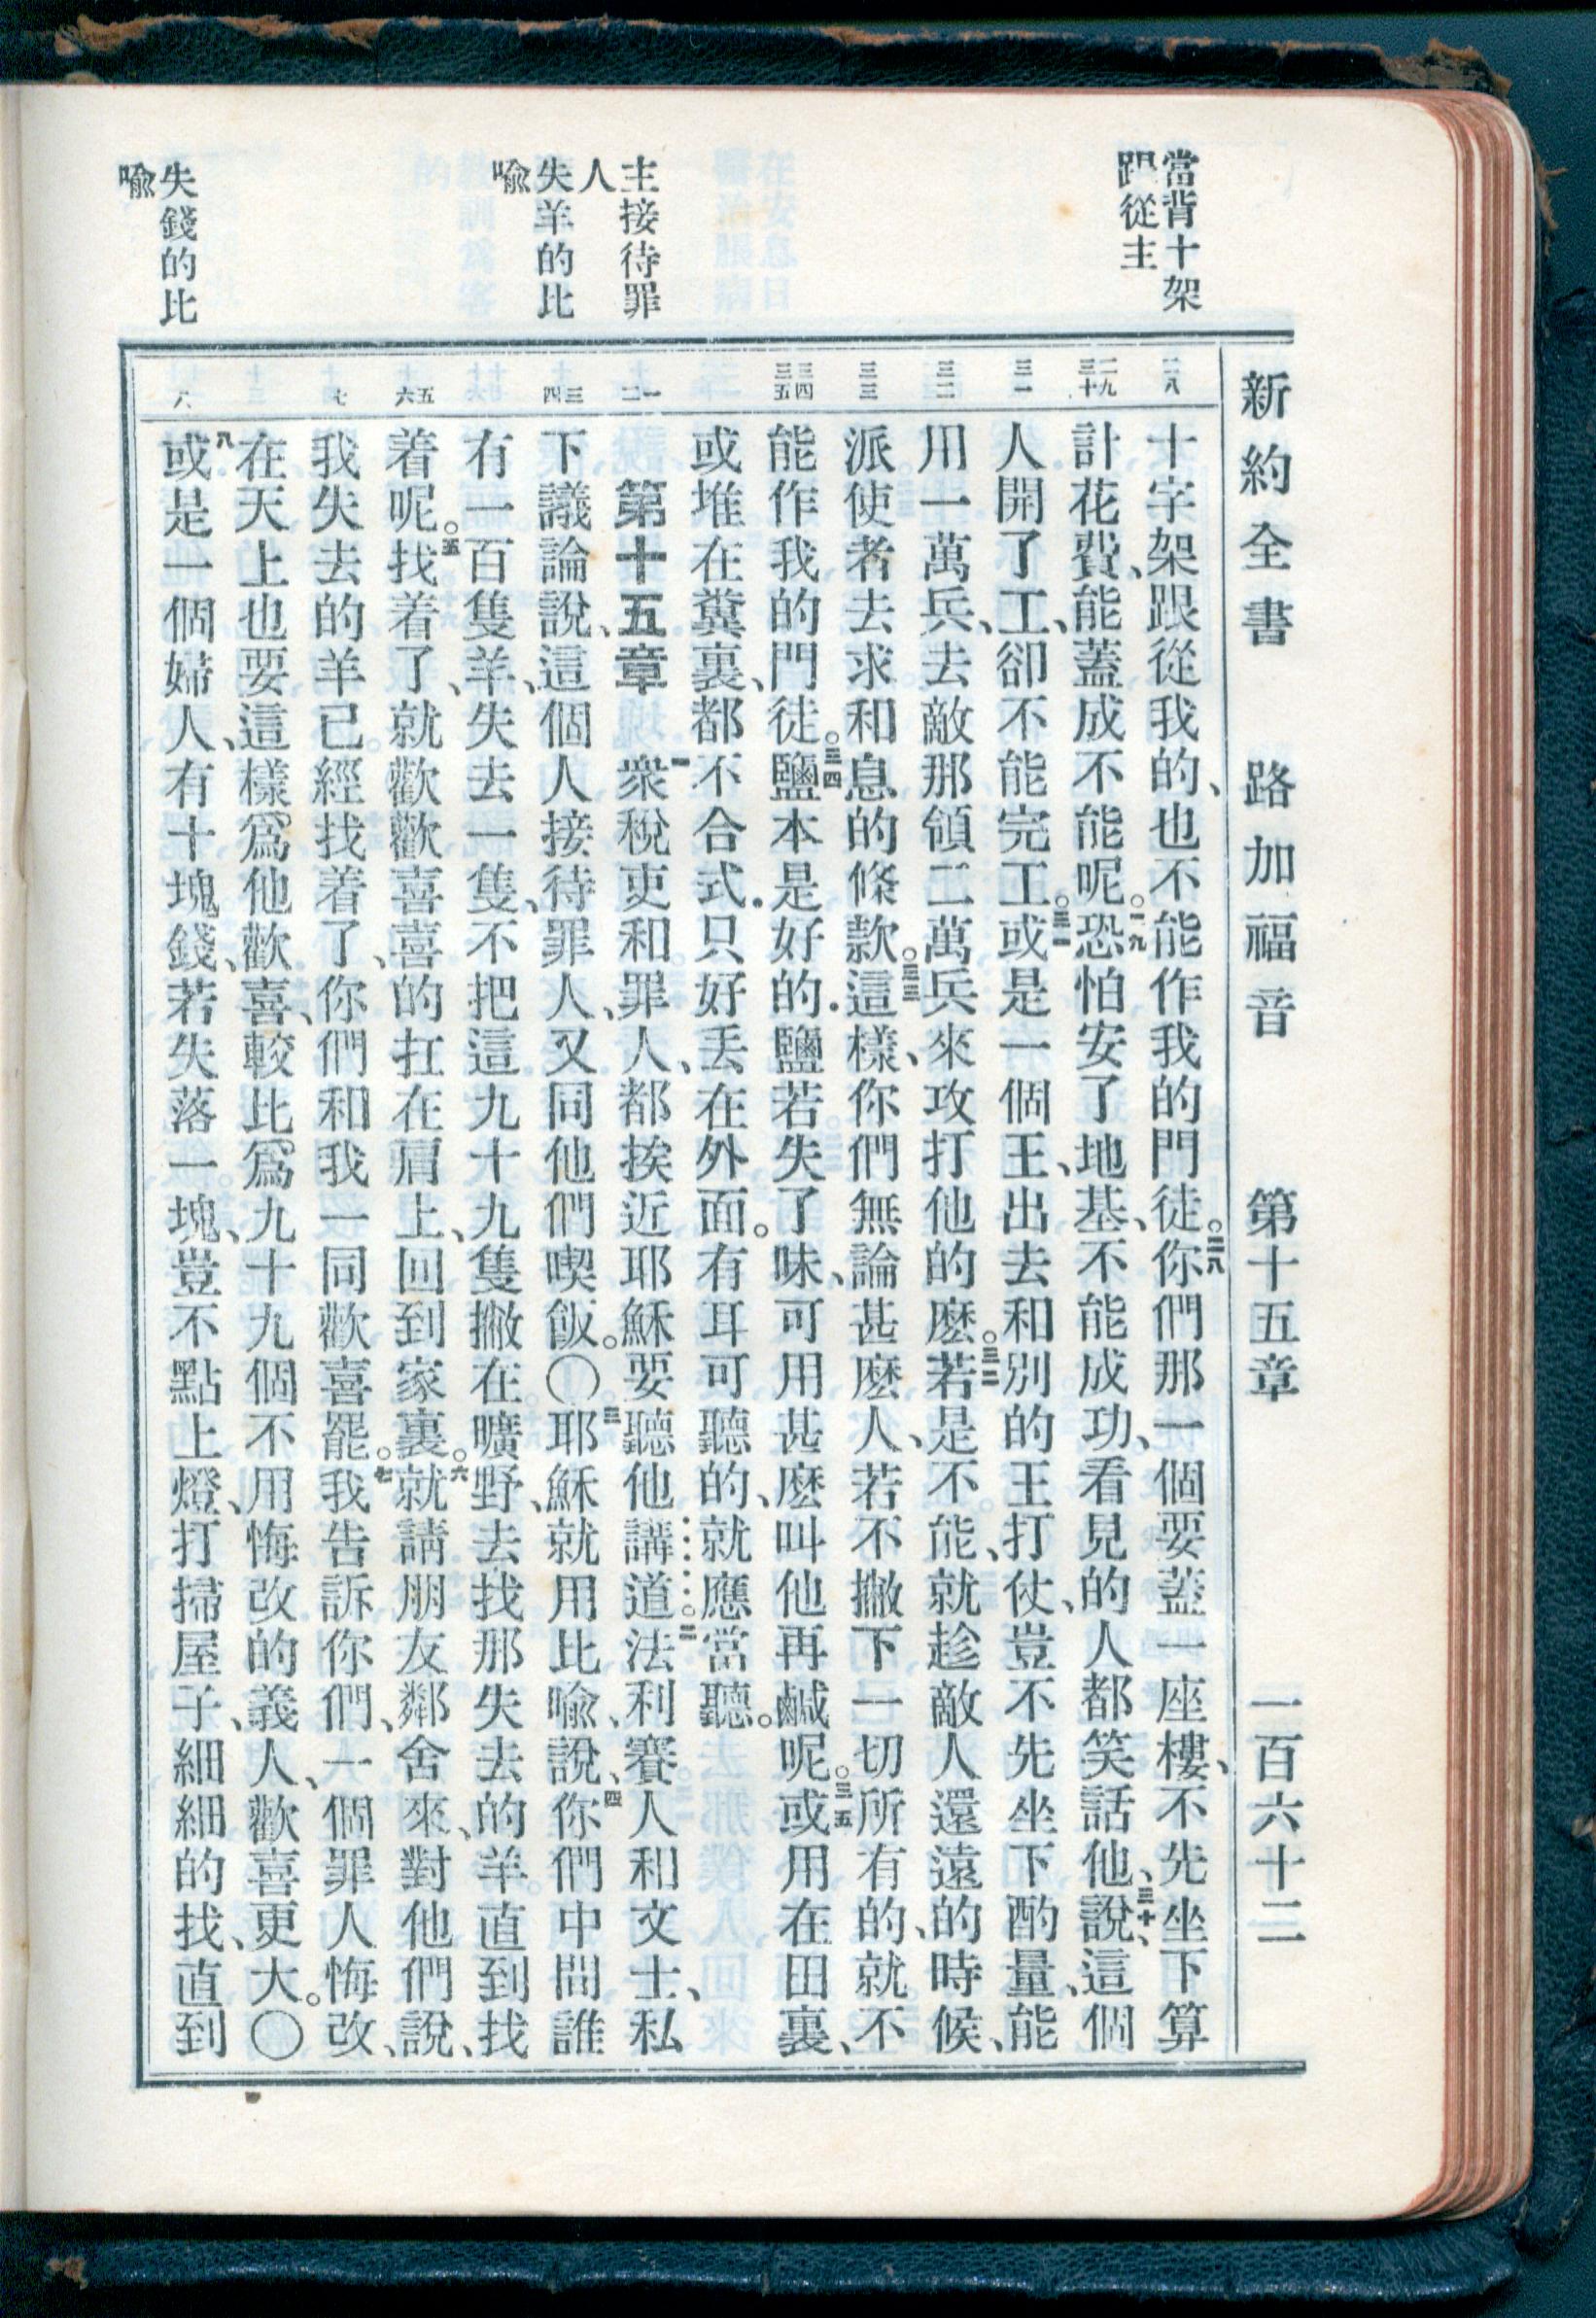 新約全書　路加福音　第十五章　一百六十二
當背十架
跟從主
主接待罪
人
失羊的比
喩
失錢的比
喩
二八
二九
三十
三一
三二
三三
三四
三五
一
二
三
四
五
六
七
八
十字架跟從我的、也不能作我的門徒。二八你們那一個要蓋一座樓、不先坐下算
計花費、能蓋成不能呢。二九恐怕安了地基、不能成功、看見的人都笑話他、三十說、這個
人開了工、卻不能完工。三一或是一個王、出去和別的王打仗、豈不先坐下酌量、能
用一萬兵、去敵那領二萬兵來攻打他的麽。三二若是不能、就趁敵人還遠的時候、
派使者去求和息的條款。三三這樣、你們無論甚麽人、若不撇下一切所有的、就不
能作我的門徒。三四鹽本是好的．鹽若失了味、可用甚麽叫他再鹹呢。三五或用在田裏、
或堆在糞裏、都不合式．只好丢在外面。有耳可聽的、就應當聽。
第十五章　一衆稅吏和罪人、都挨近耶穌要聽他講道。二法利賽人和文士、私
下議論說、這個人接待罪人、又同他們喫飯。〇三耶穌就用比喩、說、四你們中間誰
有一百隻羊、失去一隻、不把這九十九隻撇在曠野、去找那失去的羊直到找
着呢。五找着了、就歡歡喜喜的扛在肩上、回到家裏。六就請朋友鄰舍來、對他們說、
我失去的羊已經找着了、你們和我一同歡喜罷。七我告訴你們、一個罪人悔改、
在天上也要這樣爲他歡喜、較比爲九十九個不用悔改的義人、歡喜更大。〇
八或是一個婦人、有十塊錢、若失落一塊、豈不點上燈、打掃屋子、細細的找、直到